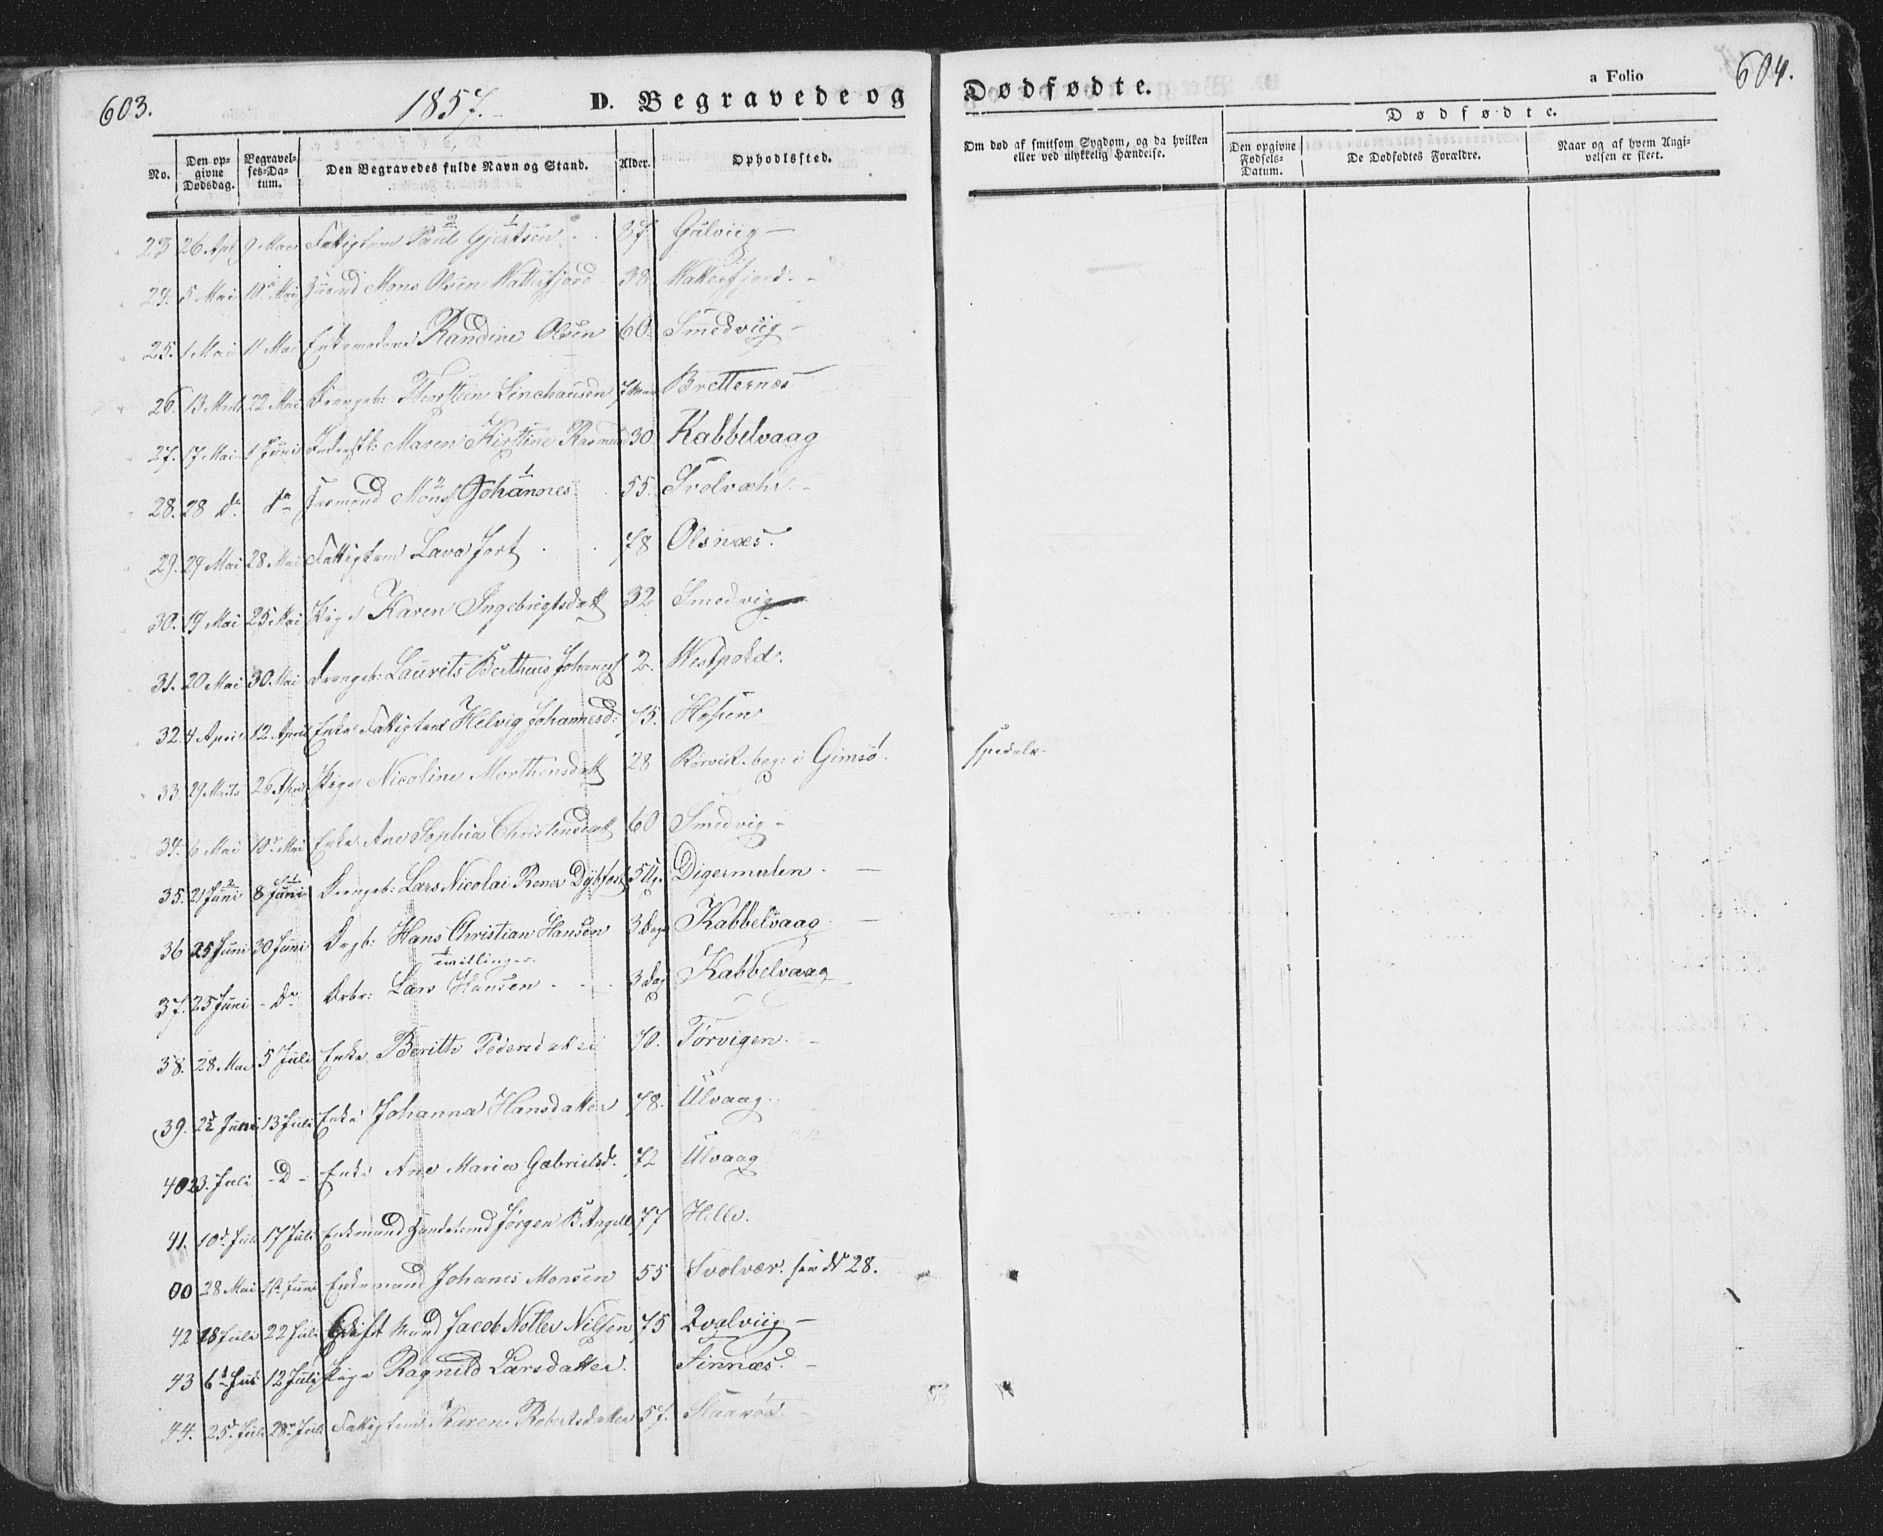 603. 1857. D. Begravede og Dødfødte. a Folio 604.
No. Den opgivne Dødsdag. Begravelses-Datum. Den Begravedes fulde Navn og Stand. Alder. Opholdssted. Om død af smitsom Sygdom, og da hvilken eller ved ulykkelig Hændelse. Dødfødte.
Den opgivne Fødsels-Datum. De Dødfødtes Forældre. Naar og af hvem Angivelsen er skeet.
23 26 Apl 9 Mai Fattiglem Paul Gjertsen 37 Gulviig
24. 5 Mai 10 Mai Mons Olsen Watterfjord 38 Watterfjord
25. 1 Mai 11 Mai Randine Olsen 60 Smedviig
26. 13 22 Mai Drengeb: Thorsteen Linchausen 7 Bretternæs
27. 17 Mai 1 Juni Maren Kirstine Rasmus 30 Kabbelvaag
28. 28 do do Mons Johannes 55. Svolvæhr
29. 29 Mai 28 Mai Fattiglem Lava Jort 78 Olsnæs.
30. 19 Mai 25 Mai Pige Karen Ingebrigtsdatt 32 Smedvig
31. 20 Mai 30 Mai Drengeb: Laurits Berthus Johanes 2. Westpold
32. 4 April 12 April Enke Fattiglem Helvig Johannesd: 75. Hopen
33. 29 Marts 26 April Pige Nicoline Morthensdatt 28 Rørvik. beg: i Gimsø. spedalsk
34. 6 Mai 10 Mai Enke Ane Sophia Christensdatt 60 Smedvig
35. 21 Juni 8 Juni Drengeb: Lars Nicolai Rener Dybfest 5 Ug. Digermulen
36 25 Juni 30 Juni Drgb: Hans Christian Hansen 3 Dage Kabbelvaag
Tvillinger
37. 25 Juni do Lars Hansen 3 Dag Kabbelvaag
38. 28 Mai 5 Juli Enke Berith Pedersdatter 70. Tørvigen.
39. 22 Juni 13 Juli Enke Johanna Hansdatter 78. Ulvaag
40 23. Juli D Enke Ane Maria Gabrielsd. 72 Ulvaag
41. 10 Juli 17 Juli Enkemand Handelsmd Jørgen B Angell 77 Helle.
00 28 Mai 1 Juni Enkemand Johanes Monsen 55 Svolvær. see No 28.
42 18 Juli 22 Juli Gift Mand Jacob Notler Nilsen 75 Qvalviig
43 6 Juli 12 Juli Pige Ragnild Larsdatter. Finnæs.
44. 25 Juli 28 Juli Fattiglem Karen Robertsdatter 57.